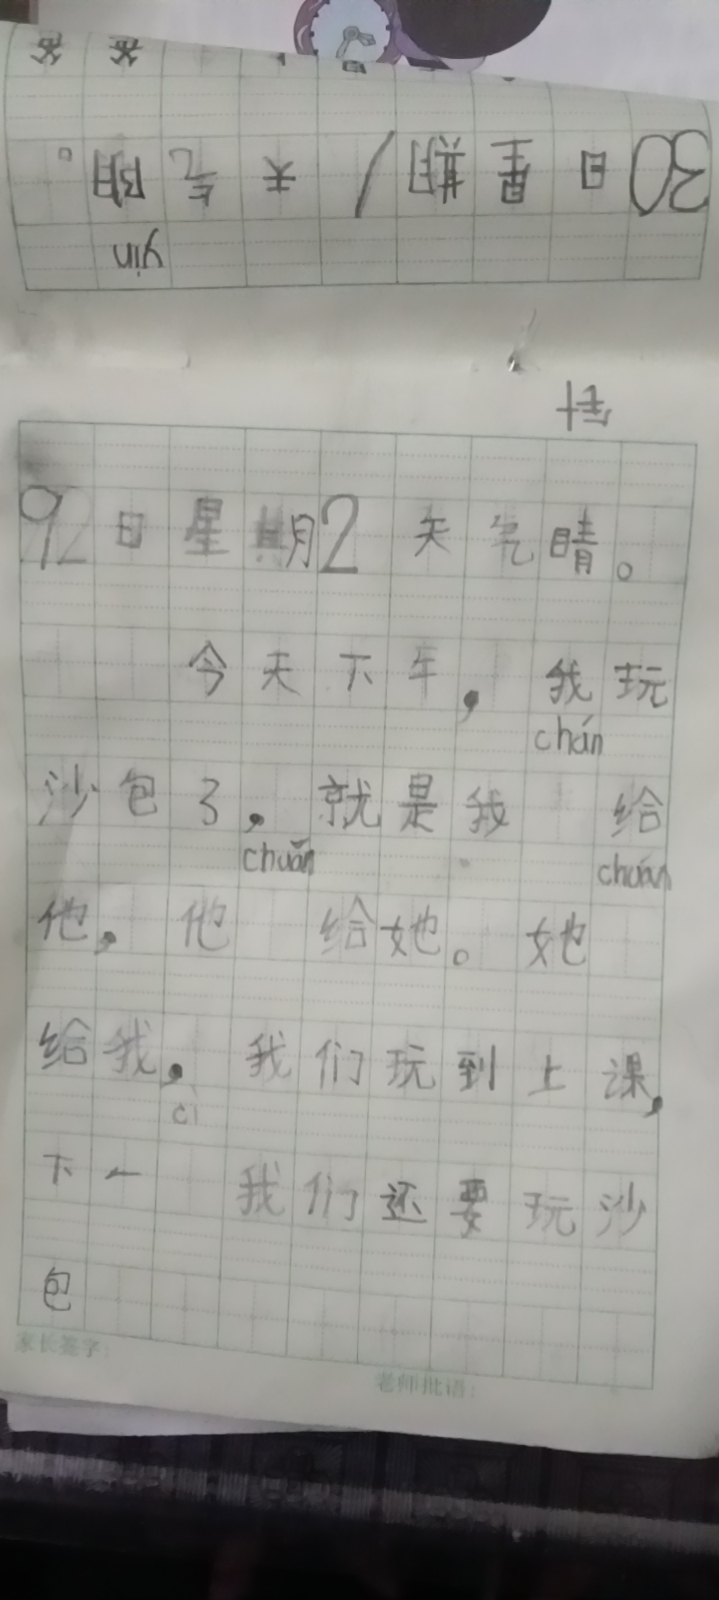 yin
30日星期1天气阴。
92日星期2天气晴。
今天下午，我玩
chán
沙包了，就是我 给
chuǎn chuán
他，他 给她。她
给我，我们玩到上课，
cì
下一 我们还要玩沙
包
家长签字：
老师批语：